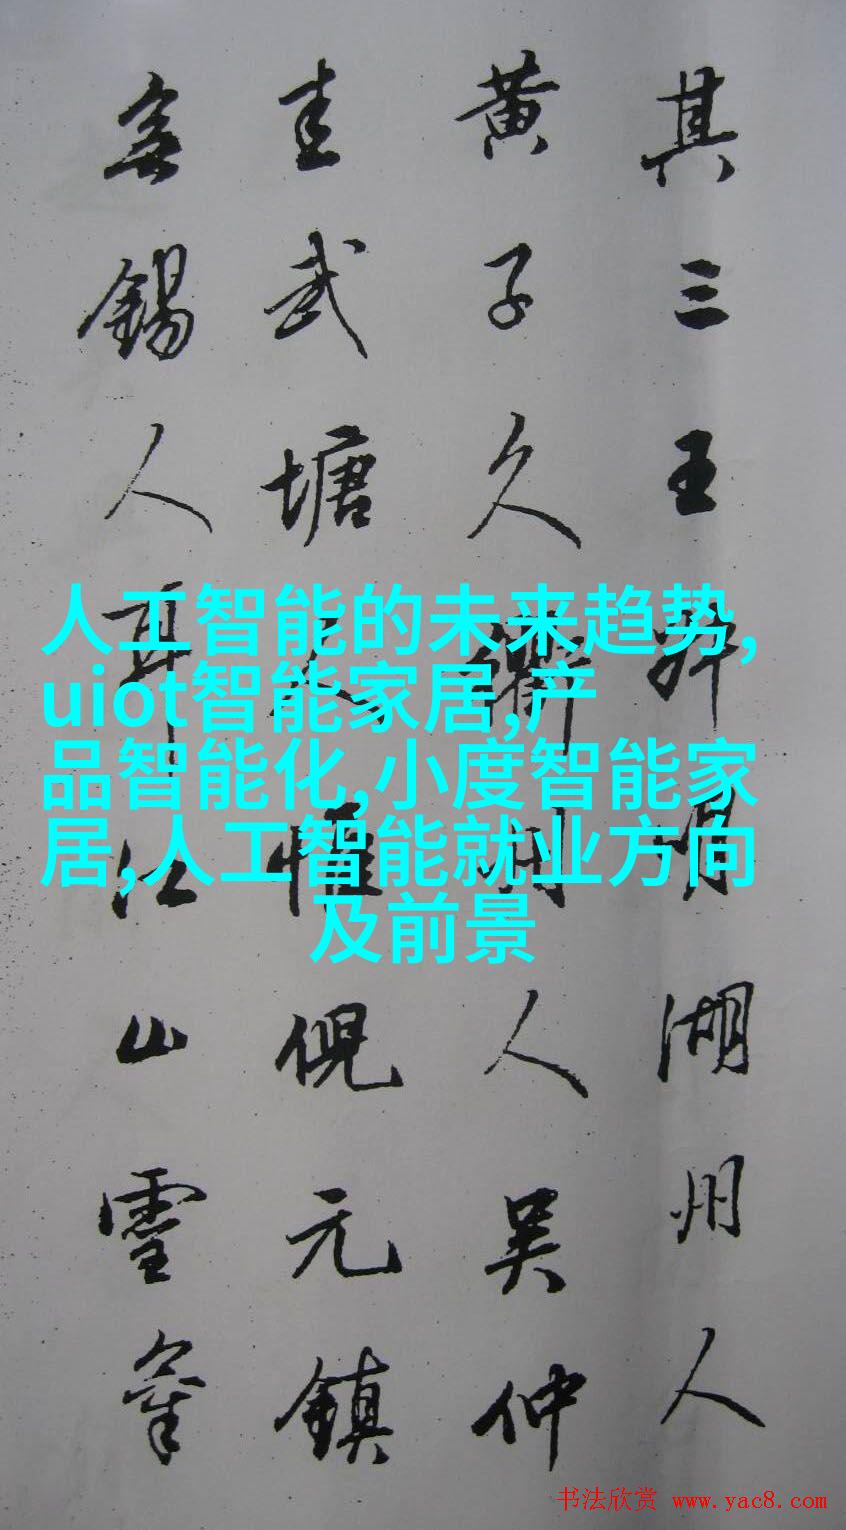 其三王叔明湖州人
黄子久衢州人吴仲
圭武塘人惟倪元鎮
無錫人耳江山靈氣
人工智能的未来趋势,
uiot智能家居,产
品智能化,小度智能家
居,人工智能就业方向
及前景
书法欣赏 www.yac8.com